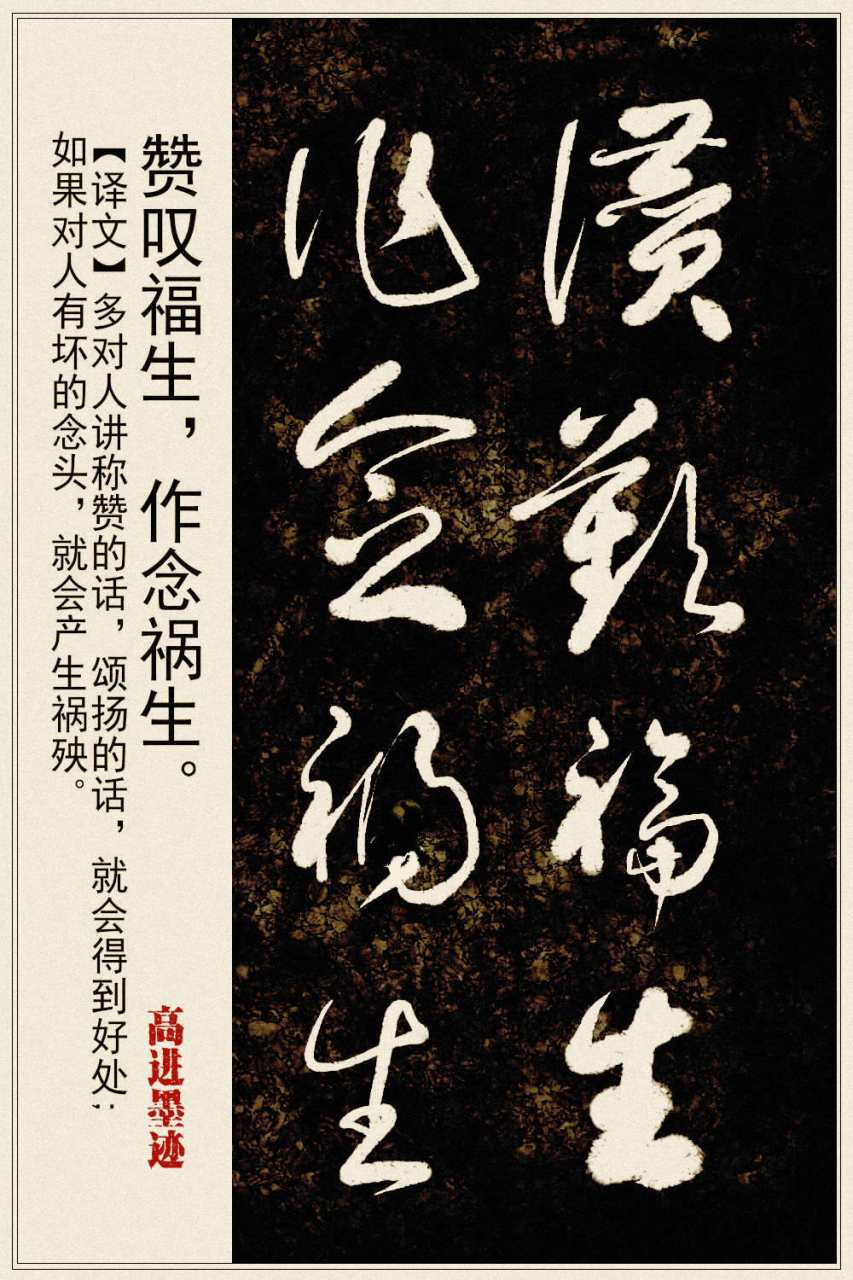 讚歎福生
作念禍生
赞叹福生，作念祸生。
【译文】多对人讲称赞的话，颂扬的话，就会得到好处
如果对人有坏的念头，就会产生祸殃。
高进墨迹